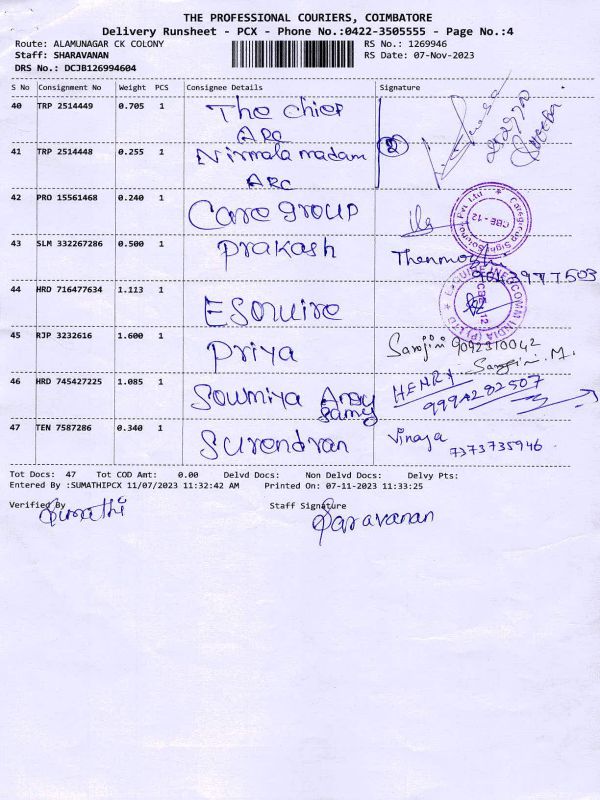 THE PROFESSIONAL COURIERS, COIMBATORE
Delivery Runsheet - PCX - Phone No.:0422-3505555 - Page No.:4
Route: ALAMUNAGAR CK COLONY RS No.: 1269946
Staff: SHARAVANAN RS Date: 07-Nov-2023
DRS No.: DCJB126994604
S No Consignment No Weight PCS Consignee Details Signature
40 TRP 2514449 0.705 1 The chief
ARC
41 TRP 2514448 0.255 1 Nirmala madam 2
ARC
42 PRO 15561468 0.240 1 Care group
Caregroup Sight Solution Pvt Ltd. CBE - 12
43 SLM 332267286 0.500 1 Prakash
44 HRD 716477634 1.113 1 Esquire
INDIA (P) LTD
45 RJP 3232616 1.600 1 Priya Sarojini 9092310042
Sarojini. M.
46 HRD 745427225 1.085 1 Soumiya HENRY
samy 9994282507
47 TEN 7587286 0.340 1 Surendran Vinaya
7373735946
Tot Docs: 47 Tot COD Amt: 0.00 Delvd Docs: Non Delvd Docs: Delvy Pts:
Entered By :SUMATHIPCX 11/07/2023 11:32:42 AM Printed On: 07-11-2023 11:33:25
Verified By Staff Signature
Sumathi Saravanan